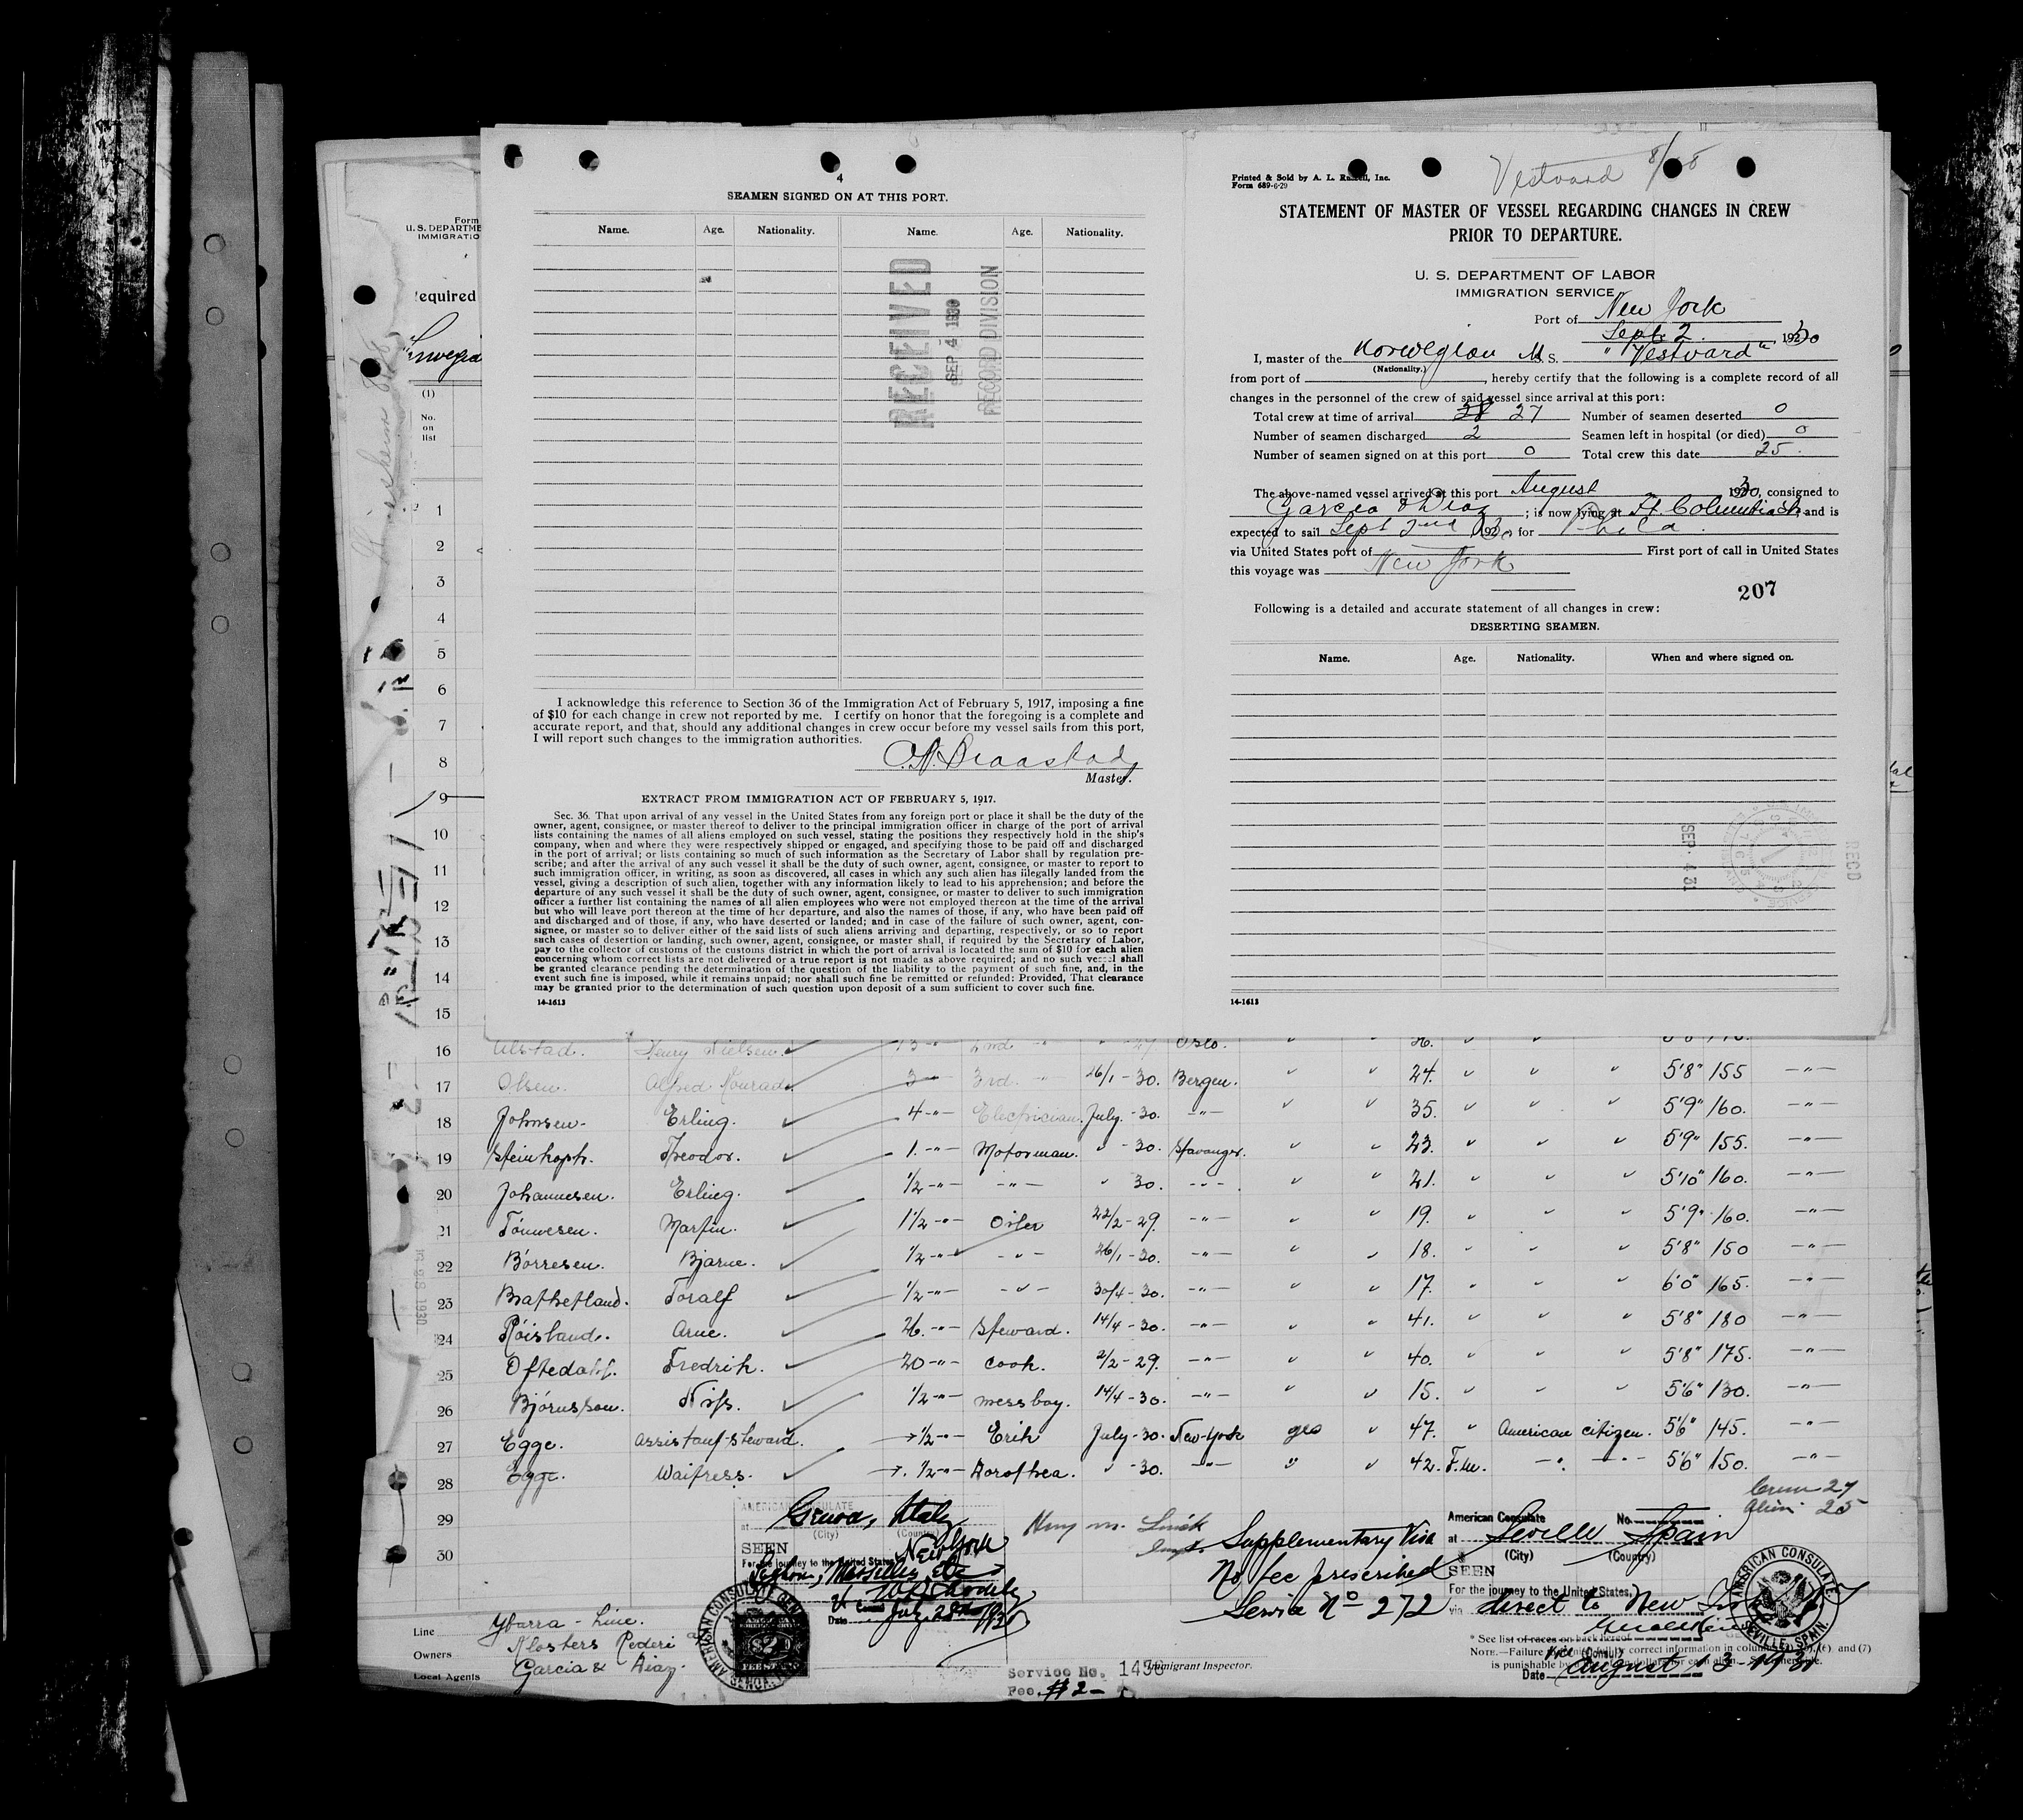 4
SEAMEN SIGNED ON AT THIS PORT.
Name. Age. Nationality. Name. Age. Nationality.
RECEIVED
SEP 4 1930
RECORD DIVISION
I acknowledge this reference to Section 36 of the Immigration Act of February 5, 1917, imposing a fine
of $10 for each change in crew not reported by me. I certify on honor that the foregoing is a complete and
accurate report, and that, should any additional changes in crew occur before my vessel sails from this port,
I will report such changes to the immigration authorities.
Master.
EXTRACT FROM IMMIGRATION ACT OF FEBRUARY 5, 1917.
Sec. 36. That upon arrival of any vessel in the United States from any foreign port or place it shall be the duty of the
owner, agent, consignee, or master thereof to deliver to the principal immigration officer in charge of the port of arrival
lists containing the names of all aliens employed on such vessel, stating the positions they respectively hold in the ship's
company, when and where they were respectively shipped or engaged, and specifying those to be paid off and discharged
in the port of arrival; or lists containing so much of such information as the Secretary of Labor shall by regulation pre-
scribe; and after the arrival of any such vessel it shall be the duty of such owner, agent, consignee, or master to report to
such immigration officer, in writing, as soon as discovered, all cases in which any such alien has illegally landed from the
vessel, giving a description of such alien, together with any information likely to lead to his apprehension; and before the
departure of any such vessel it shall be the duty of such owner, agent, consignee, or master to deliver to such immigration
officer a further list containing the names of all alien employees who were not employed thereon at the time of the arrival
but who will leave port thereon at the time of her departure, and also the names of those, if any, who have been paid off
and discharged and of those, if any, who have deserted or landed; and in case of the failure of such owner, agent, con-
signee, or master so to deliver either of the said lists of such aliens arriving and departing, respectively, or so to report
such cases of desertion or landing, such owner, agent, consignee, or master shall, if required by the Secretary of Labor,
pay to the collector of customs of the customs district in which the port of arrival is located the sum of $10 for each alien
concerning whom correct lists are not delivered or a true report is not made as above required; and no such vessel shall
be granted clearance pending the determination of the question of the liability to the payment of such fine, and, in the
event such fine is imposed, while it remains unpaid; nor shall such fine be remitted or refunded: Provided, That clearance
may be granted prior to the determination of such question upon deposit of a sum sufficient to cover such fine.
14-1613
Vestvard
Printed & Sold by A. L. Russell, Inc.
Form 689-6-29
STATEMENT OF MASTER OF VESSEL REGARDING CHANGES IN CREW
PRIOR TO DEPARTURE.
U. S. DEPARTMENT OF LABOR
IMMIGRATION SERVICE
Port of New York
Sept. 2 1930
I, master of the Norwegian M. S. "Vestvard"
(Nationality.)
from port of , hereby certify that the following is a complete record of all
changes in the personnel of the crew of said vessel since arrival at this port:
Total crew at time of arrival 28 27 Number of seamen deserted 0
Number of seamen discharged 2 Seamen left in hospital (or died) 0
Number of seamen signed on at this port 0 Total crew this date 25.
The above-named vessel arrived at this port August 1930, consigned to
Garcia & Diaz ; is now lying at Ft. Columbia St, and is
expected to sail Sept 2nd 1930, for Phila.
via United States port of First port of call in United States
this voyage was New York
207
Following is a detailed and accurate statement of all changes in crew:
DESERTING SEAMEN.
Name. Age. Nationality. When and where signed on.
SEP. 4 31
REC'D
14-1613
Form
U. S. DEPARTME
IMMIGRATIO
equired
(1)
No.
on
list
1
2
3
4
5
6
7
8
9
10
11
12
13
14
15
16 Alstad. Henry Nielsen. 2nd Oslo.
17 Olsen. Alfred Konrad. 3 -"- 3rd -"- 26/1 - 30. Bergen. " " 24. " " " 5'8" 155 -"-
18 Johnsen. Erling. 4 -"- Electrician. July. - 30. -"- " " 35. " " " 5'9" 160. -"-
19 Steinkoph. Theodor. 1. -"- Motorman. " - 30. Stavanger. " " 23. " " " 5'9" 155. -"-
20 Johannesen. Erling. 1/2 -"- -"- " 30. -"- " " 21. " " " 5'10" 160. -"-
21 Tönnesen. Martin. 1 1/2 -"- Oiler 22/2 - 29. -"- " " 19. " " " 5'9" 160. -"-
22 Börresen. Bjarne. 1/2 -"- -"- 26/1 - 30. -"- " " 18. " " " 5'8" 150 -"-
23 Brathetland. Toralf 1/2 -"- -"- 30/4 - 30. -"- " " 17. " " " 6'0" 165. -"-
24 Röisland. Arne. 26. -"- Steward. 14/4 - 30. -"- " " 41. " " " 5'8" 180 -"-
25 Oftedahl. Fredrik. 20 -"- Cook. 2/2 - 29. -"- " " 40. " " " 5'8" 175. -"-
26 Björnsson. Nils. 1/2 -"- messboy. 14/4 - 30. -"- " " 15. " " " 5'6" 130. -"-
27 Egge. Assistant-Steward. 1/2 -"- Erik July - 30. New-York yes " 47. " American citizen. 5'6" 145. -"-
28 Egge. Waitress. 1/2 -"- Dorothea. " - 30. -"- " " 42. F.m. -"- -"- 5'6" 150. -"-
29
30
Crew 27
Alien 25
AMERICAN CONSULATE
at Genoa, Italy
(City) (Country)
SEEN
For the journey to the United States New York
Marseilles, Etc
Date July 28th 1930
Service No. 1493
Fee, $2-
Immigrant Inspector.
Supplementary Visa
No fee prescribed
Service No 272
American Consulate No.
at Seville Spain
(City) (Country)
SEEN
For the journey to the United States,
via direct to New York
(Consul)
Date August 13-1930
AMERICAN CONSULATE
SEVILLE, SPAIN.
* See list of races on back hereof.
Line Ybarra - Line.
Owners Klosters Rederi
Local Agents Garcia & Diaz.